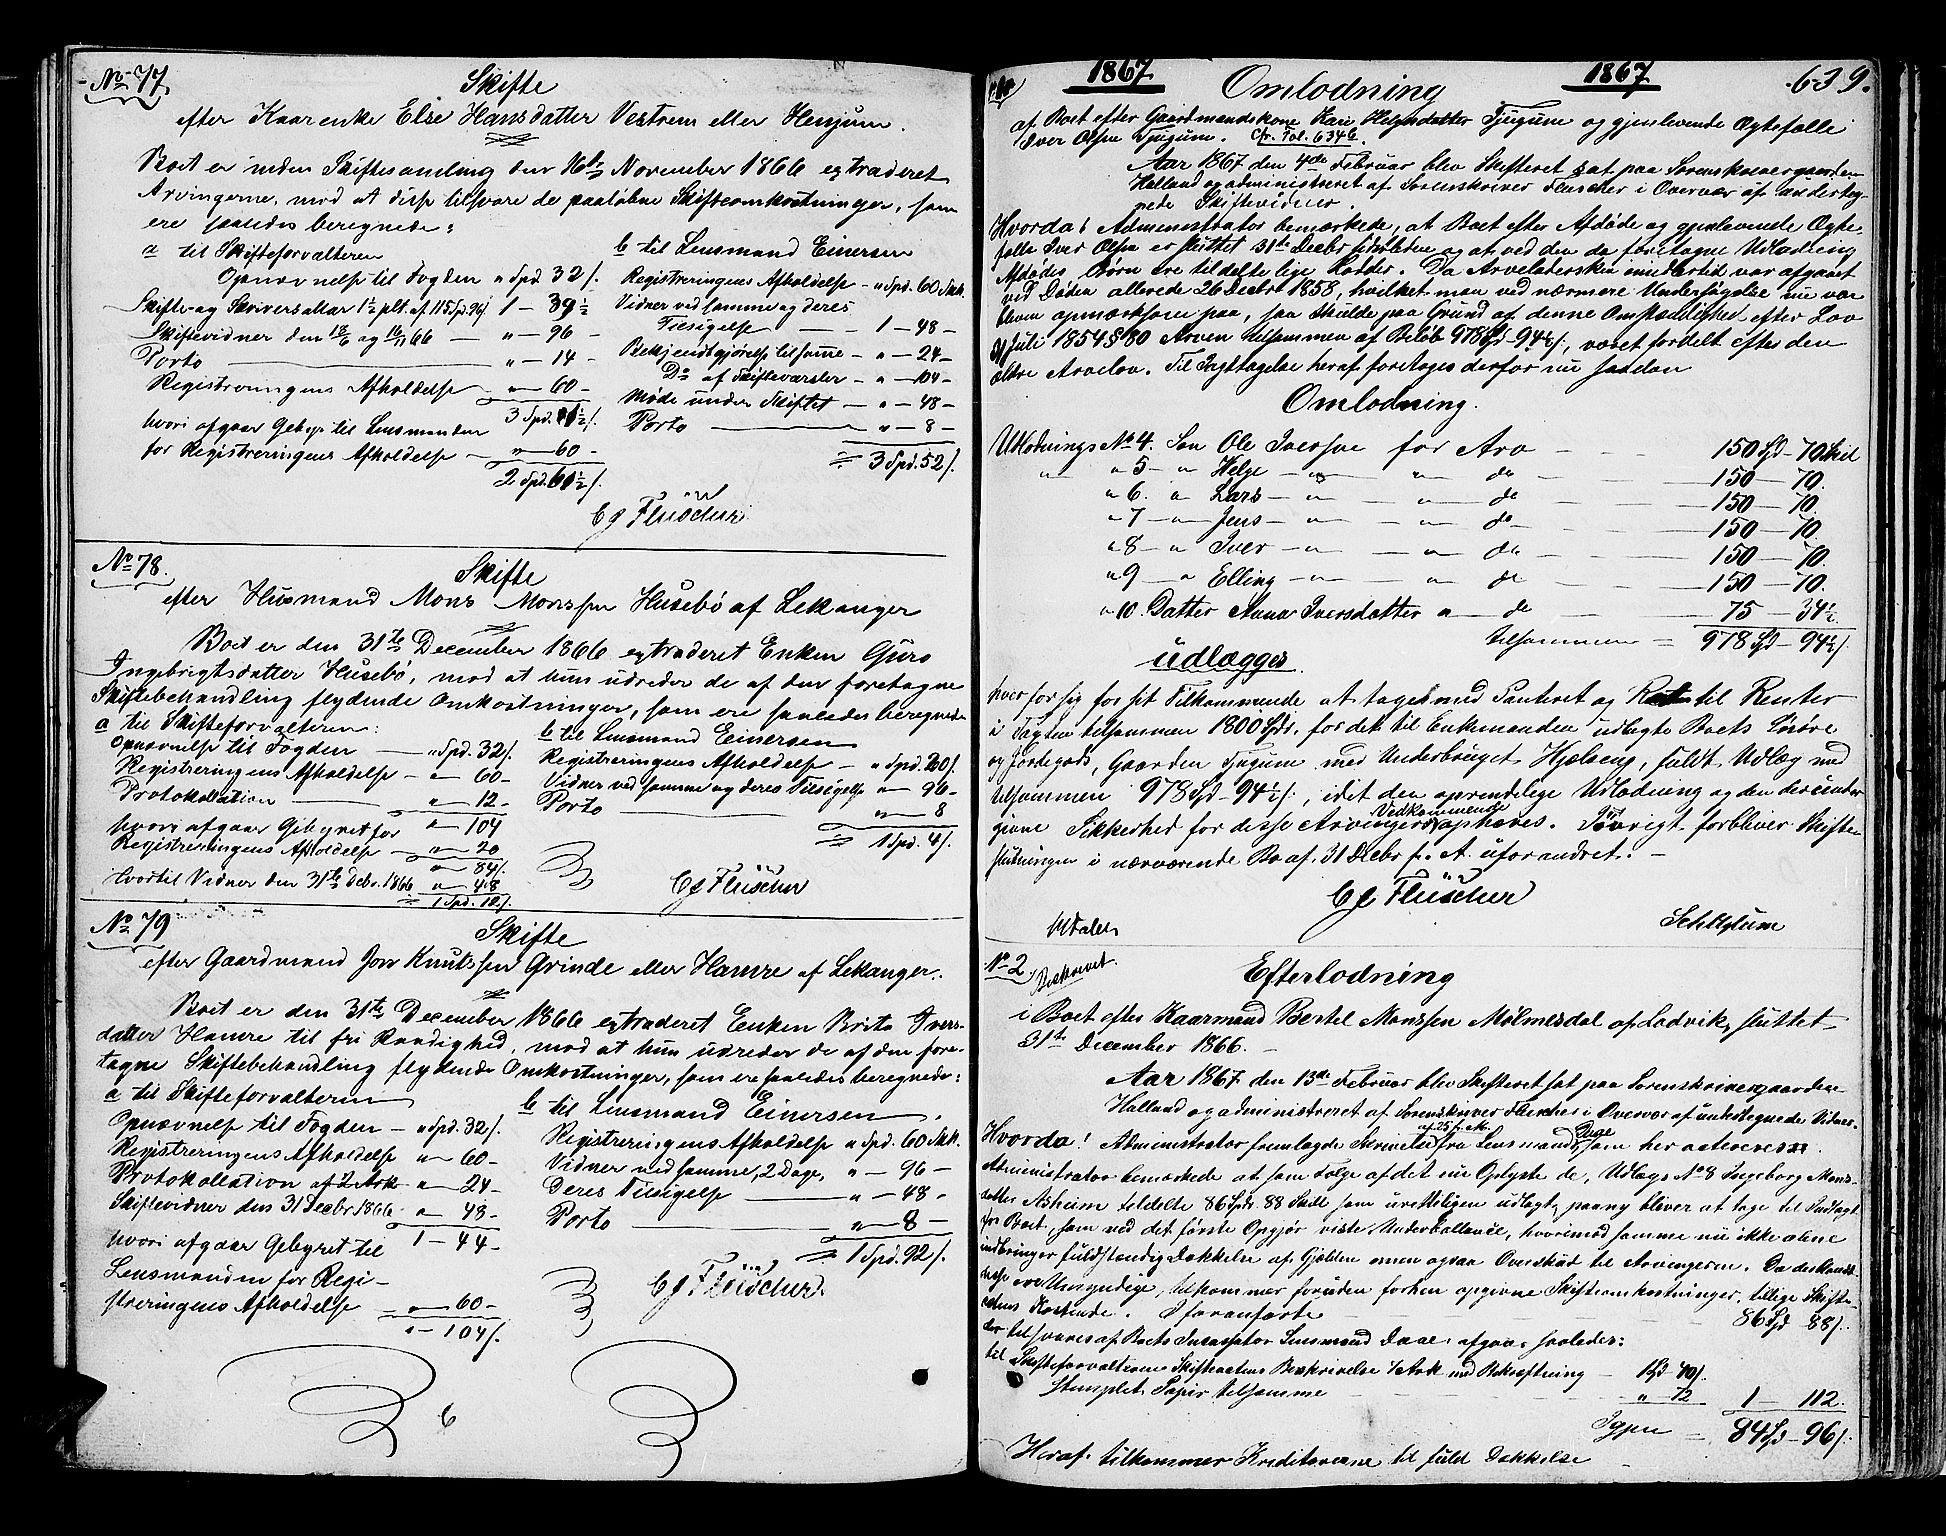 No 77. Skifte
efter Kaarenke Else Hansdatter Vestrem eller Henjum.
Boet er inden Skiftesamling den 16de November 1866 extraderet
Arvingerne, mod at disse tilsvare de paaløbne Skifteomkostninger, som
ere saaledes beregnede:
a til Skifteforvalteren
Opnævnelse til Fogden " Spd 32 s.
Skifte- og Skriversallar 1½ pCt. af 115 Spd. 96 s 1 - 39½
Skiftevidner den 18/6 og 16/11 66 — " - 96 -
Porto " - 14 -
Registreringens Afholdelse " - 60 -
3 Spd. 1½ s.
hvori afgaar Gebyr til Lensmanden
for Registreringens Afholdelse — " - 60 -
2 Spd. 61½ s.
b til Lensmand Einersen
Registreringens Afholdelse - " Spd. 60 Sk.
Vidner ved samme og deres
Tilsigelse 1 - 48 -
Bekjendtgjørelse tilsamme - " - 24 -
Do af Skifteværsler - " - 104 -
Møde under Skiftet — " - 48 -
Porto " - 8 -
= 3 Spd. 52 s.
CG Fleischer
No 78. Skifte
efter Husmand Mons Monssen Husebø af Lekanger
Boet er den 31te December 1866 extraderet Enken Guro
Ingebrigtsdatter Husebø, mod at hun udreder de af den foretagne
Skiftebehandling flydende Omkostninger, som ere saaledes beregnede
a til Skifteforvalteren:
Opnævnelse til Fogden — " Spd. 32 s.
Registreringens Afholdelse - " - 60 -
Protokollation " - 12 -
" - 104
hvori afgaar Gebyret for
Registreringens Afholdelse — " - 20
" - 84 s.
Hvortil Vidner den 31te Decbr. 1866 " - 48
= 1 Spd. 12 s.
b til Lensmand Einersen
Registreringens Afholdelse — " Spd. 20 s.
Vidner ved samme og deres Tilsigelse " - 96 -
Porto " - 8
= 1 Spd. 4 s.
CG Fleischer
No 79 Skifte
efter Gaardmand Jon Knutssen Grinde eller Hamre af Lekanger.
Boet er den 31te December 1866 extraderet Enken Brita Ivers-
datter Hamre til fri Raadighed, mod at hun udreder de af den fore-
tagne Skiftebehandling flydende Omkostninger, som ere saaledes beregnede:
a til Skifteforvalteren
Opnævnelse til Fogden - " Spd. 32 s.
Registreringens Afholdelse " - 60 -
Protokollation af 2 Ark " - 24 -
Skiftevidner den 31 Decbr 1866 " - 48 -
1 - 44 -
hvori afgaar Gebyret til
Lensmanden for Regi-
streringens Afholdelse " - 60 -
" - 104 s.
b til Lensmand Einersen.
Registreringens Afholdelse " Spd. 60 Sk.
Vidner ved samme, 2 Dage, " - 96 -
Deres Tilsigelse " - 48 -
Porto " - 8 -
= 1 Spd. 92 s.
CG Fleischer
1867 1867 639.
Omlodning
af Boet efter Gaardmandskone Kari Helgesdatter Tjugum og gjenlevende Ægtefælle
Iver Olsen Tjugum. Cfr. Fol. 634b.
Aar 1867 den 4de Februar blev Skifteret sat paa Sorenskrivergaarden
Halland og administreret af Sorenskriver Fleischer i Overvær af underteg-
nede Skiftevidner.
Hvorda! Administrator bemærkede, at Boet efter Afdøde og gjenlevende Ægte-
fælle Iver Olsen er sluttet 31te Decbr sidstleden og at ved den da foretagne Udlodning
Afdødes Børn ere tildelte lige Lodder. Da Arveladersken imidlertid var afgaaet
ved Døden allerede 26 Decbr 1858, hvilket man ved nærmere Undersøgelse nu var
bleven opmærksom paa, saa skulde paa Grund af denne Omstændighed efter Lov
31 Juli 1854 § 80 Arven tilsammen af Beløb 978 Spd - 94½ s., været fordelt efter den
ældre Arvelov. Til Iagttagelse heraf foretages derfor nu saadan
Omlodning.
Utlodnings No 4. Søn Ole Iversen for Arv 150 Spd - 70 Skil
" " 5 - " Helge - " - " do 150 - 70.
" 6. " Lars - " - " - do 150 - 70.
" 7 - " - Jens - " - " - do 150 - 70.
" 8 - " Iver - " - " - do 150 - 70.
" 9 - " Elling - " - " do 150 - 70.
" 10. Datter Anna Iversdatter " - do 75 - 34½
tilsammen = 978 Spd - 94½ s.
udlægges
hver for sig for sit Tilkommende at tages med Panteret og Ret til Renter
i Tagten tilsammen 1800 Spd. for det til Enkemanden udlagte Boets Løsøre
og Jordegods, Gaarden Tjugum med Underbruget Hjeleng, fuldt Udlæg med
tilsammen 978 Spd - 94½ s., idet den oprindelige Udlodning og den derunder
givne Sikkerhed for disse Arvinger Vedkommende ophæves. Iøvrigt forbliver Skifte-
slutningen i nærværende Bo af 31 Decbr f. A. uforandret. —
CG Fleischer
No 2. Beskrevet.
Efterlodning
i Boet efter Kaarmand Bertel Monssen Mølmesdal af Ladvik, sluttet
31te December 1866. —
Aar 1867 den 13de Februar blev Skifteret sat paa Sorenskrivergaarden
Halland og administreret af Sorenskriver Fleischer i Overvær af undertegnede Vidner.
Hvorda! Administrator fremlagde Skrivelse af 25 f. M. fra Lensmand Daae, som her acteres.
Administrator bemærkede at som Følge af det nu Oplyste de, Udlægs No 8 Ingeborg Mons-
datter Asheim tildelte 86 Spd. 88 Skil som uretteligen udlagt, paany bliver at tage til Indtægt
for Boet, som ved det første Opgjør viste Underballance, hvorimod samme nu ikke alene
indbringer fuldstændig Dækkelse af Gjælden men ogsaa Overskud til Arvingerne. Da der
ere Umyndige, tilkommer foruden forhen opgivne Skifteomkostninger, tillige Skifte-
Foranførte 86 Spd 88 s.
der tilsvares af Boets Incassator Lensmand Daae, afgaar saaledes:
til Skifteforvalteren Skifteactens Beskrivelse 4 Ark med Bekræftning — 1 Spd - 40 s.
Stemplet Papir tilsamme " - 72
1 - 112.
Igjen — 84 Spd - 96 s.
Heraf tilkommer Kreditorerne til fuld Dækkelse